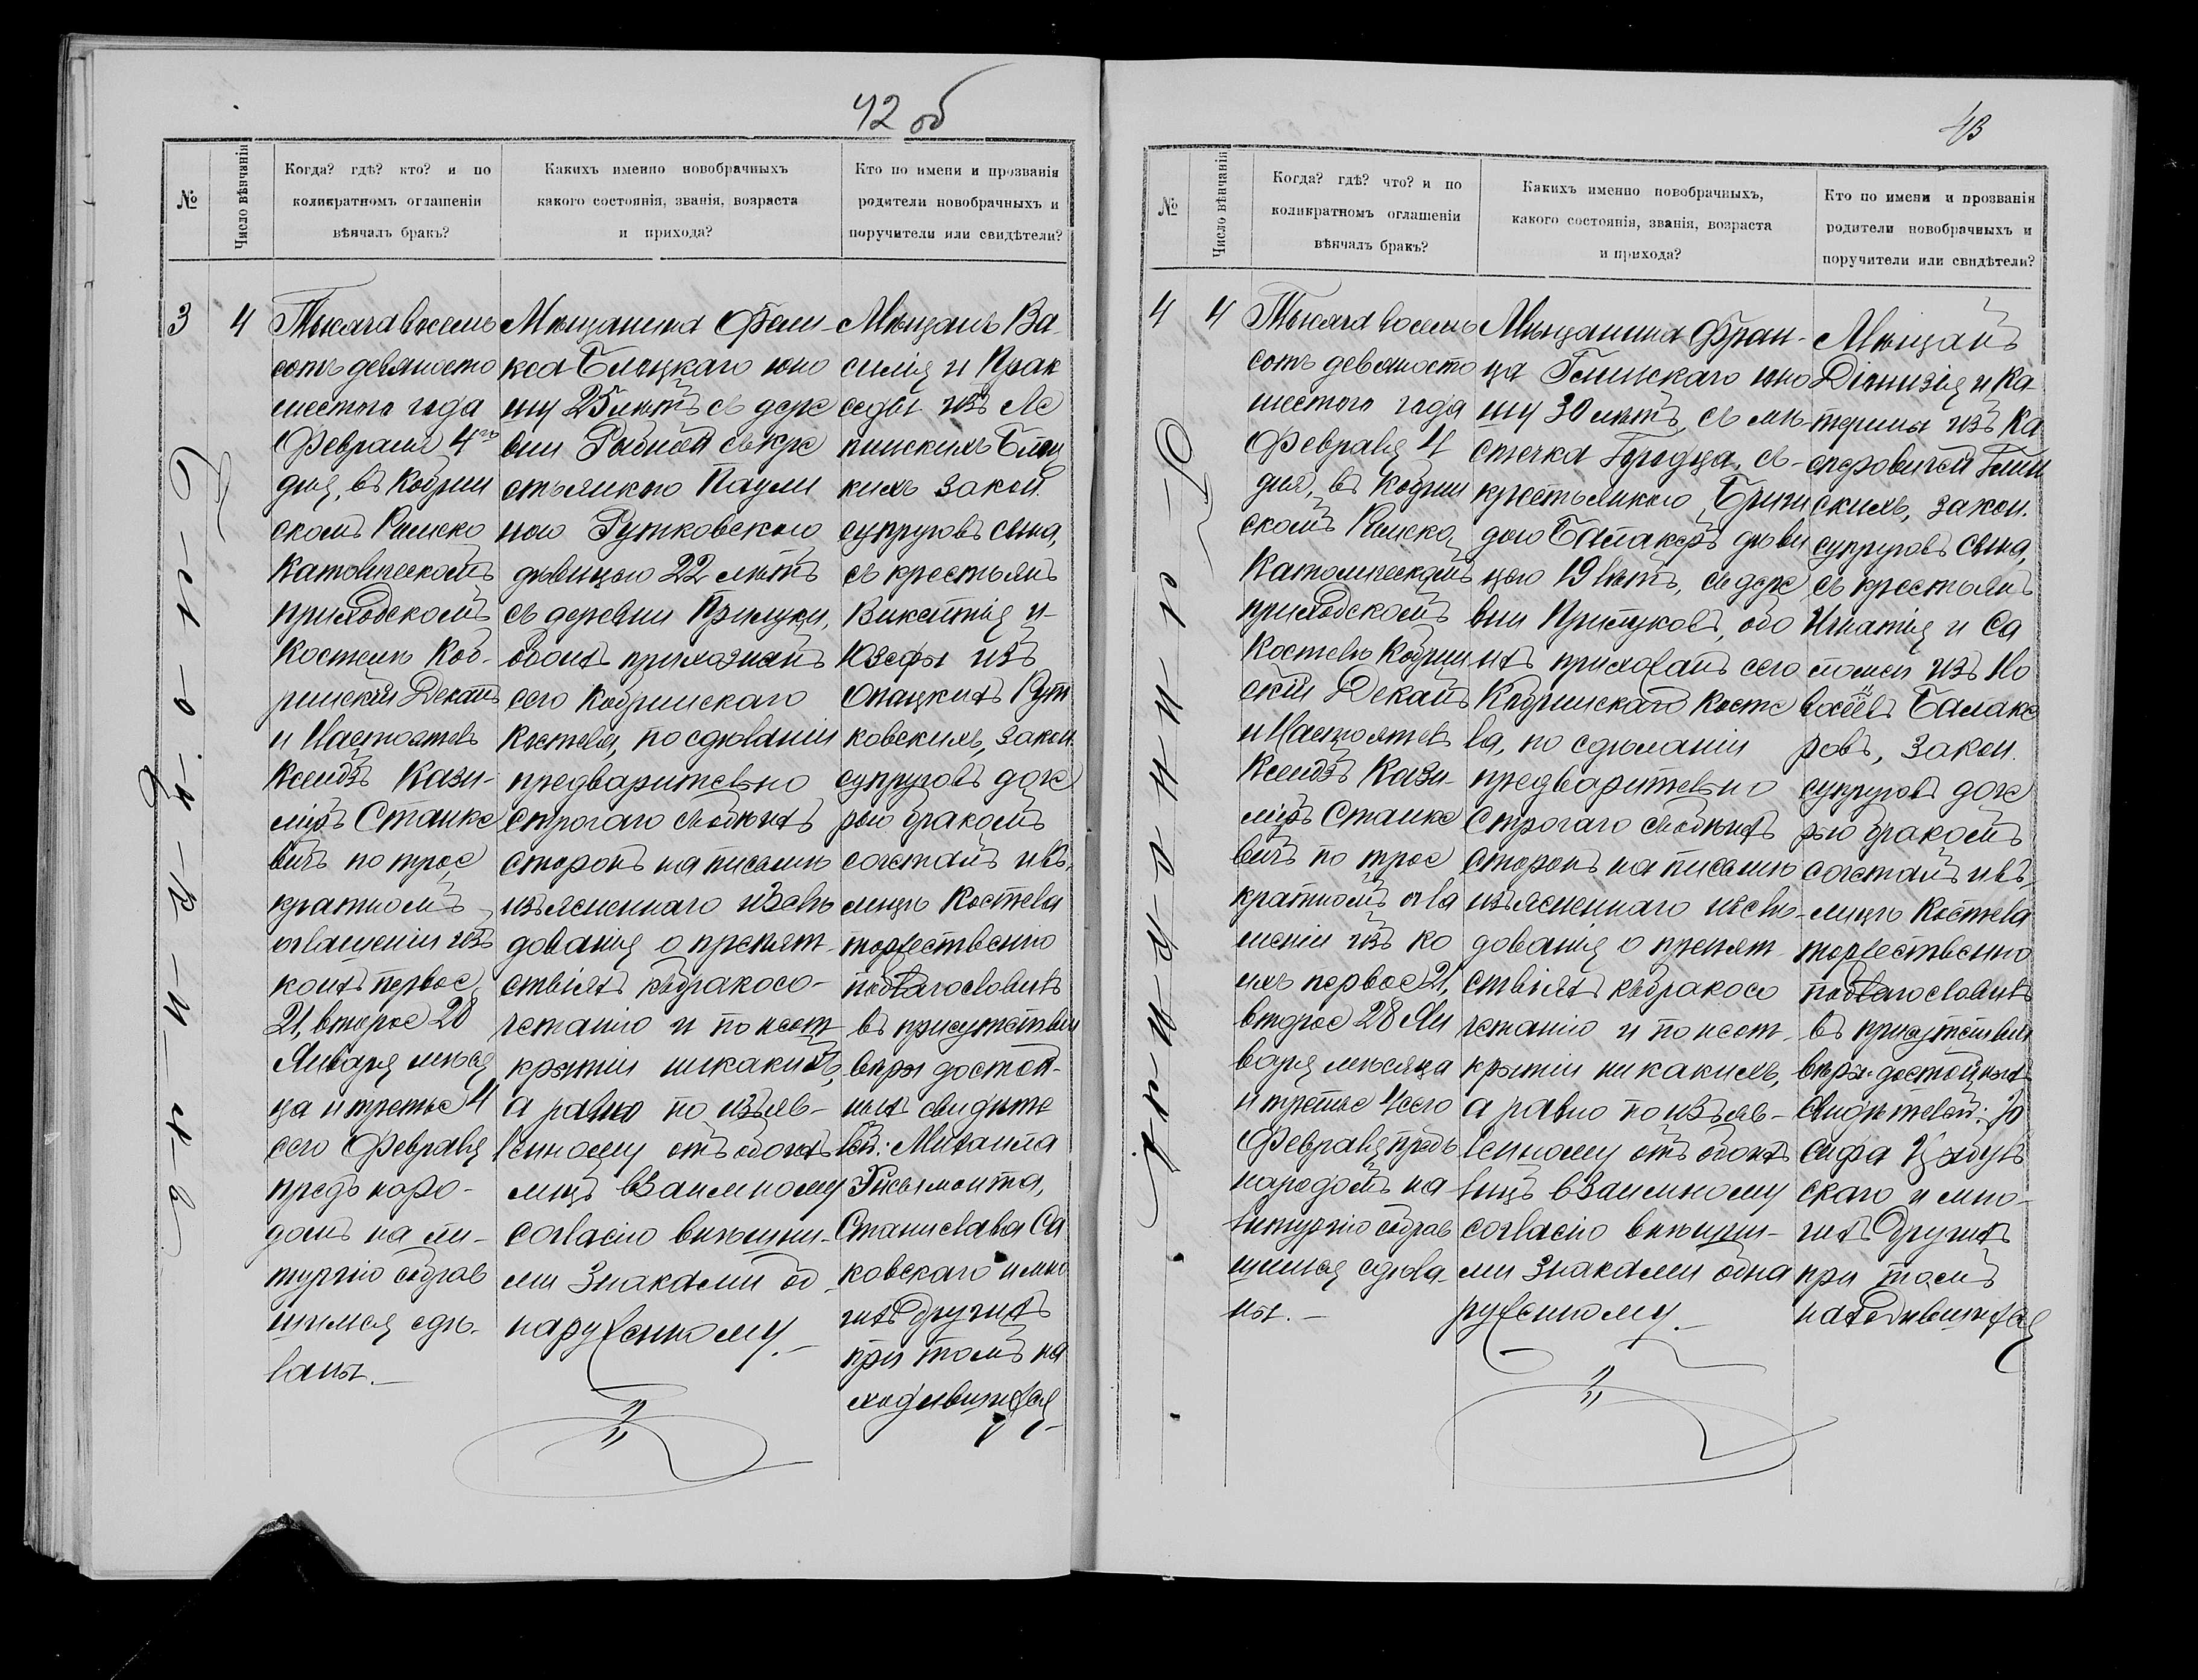 42 об
№
Число вѣнчанія
Когда? гдѣ? кто? и по
коликратномъ оглашеніи
вѣнчалъ бракъ?
Какихъ именно новобрачныхъ
какого состоянія, званія, возраста
и прихода?
Кто по имени и прозванія
родители новобрачныхъ и
поручители или свидѣтели?
3
4
Тысяча восемь
сотъ девяносто
шестого года
Февраля 4го
дня, въ Кобрин
скомъ Римско
Католическомъ
приходскомъ
Костелѣ Коб-
ринскій Деканъ
и Настоятель
Ксендзъ Кази-
міръ Станке
вичъ по трое
кратномъ
оглашеніи изъ
коихъ первое
21, второе 28
Января мѣся
ца и третье 4
сего Февраля
предъ наро-
домъ на ли-
тургію собрав
шимся сдѣ-
ланы.-
Мѣщанина Фели-
кса Бѣлецкаго юно
шу 25 лѣтъ съ дере
вни Рыбной съ кре
стьянкою Паули
ною Рутковскою
дѣвицою 22 лѣтъ
съ деревни Прилуки,
обоихъ прихожанъ
сего Кобринскаго
Костела, по сдѣланіи
предварительно
строгаго съ обѣихъ
сторонъ на письмѣ
изъясненнаго изслѣ
дованія о препят-
ствіяхъ къ бракосо-
четанію и по неот
крытіи никакихъ,
а равно по изъяв-
ленному отъ обоихъ
лицъ взаимному
согласію внѣшни-
ми знаками об
наруженному.-
Мѣщанъ Ва-
силія и Прак
седы изъ Ле
пинскихъ Бѣлец
кихъ закон.
супруговъ сына,
съ крестьянъ
Викентія и
Юзефы изъ
Опацкихъ Рут
ковскихъ, закон.
супруговъ доче
рью бракомъ
сочеталъ и въ
лицѣ Костела
торжественно
поблагословилъ
въ присутствіи
вѣры достой-
ныхъ свидѣте
лей: Михаила
Письмонта,
Станислава Са
ковскаго и мно
гихъ другихъ
при томъ на
ходившихся
43
№
Число вѣнчанія
Когда? гдѣ? что? и по
коликратномъ оглашеніи
вѣнчалъ бракъ?
Какихъ именно новобрачныхъ,
какого состоянія, званія, возраста
и прихода?
Кто по имени и прозванія
родители новобрачныхъ и
поручители или свидѣтели?
4
4
Тысяча восемь
сотъ девяносто
шестого года
Февраля 4
дня, въ Кобрин
скомъ Римско
Католическомъ
приходскомъ
Костелѣ Кобрин
скій Деканъ
и Настоятель
Ксендзъ Кази-
міръ Станке
вичъ по трое
кратномъ огла
шеніи изъ ко
ихъ первое 21,
второе 28 Ян
варя мѣсяца
и третье 4 сего
Февраля предъ
народомъ на
литургію собрав
шимся сдѣла-
ны.-
Мѣщанина Фран-
ца Глинскаго юно
шу 30 лѣтъ, съ мѣ-
стечка Городца, съ
крестьянкою Бриги
дою Балакеръ дѣви
цою 19 лѣтъ, съ дере
вни Прилуковъ, обо
ихъ прихожанъ сего
Кобринскаго Косте
ла, по сдѣланіи
предварительно
строгаго съ обѣихъ
сторонъ на письмѣ
изъясненнаго изслѣ-
дованія о препят-
ствіяхъ къ бракосо
четанію и по неот-
крытіи никакихъ,
а равно по изъяв-
ленному отъ обоихъ
лицъ взаимному
согласію внѣшни-
ми знаками обна
руженному.-
Мѣщанъ
Діонизія и Ка
терины изъ Ка
сперовичей Глин
скихъ, закон.
супруговъ сына,
съ крестьянъ
Игнатія и Са
ломеи изъ
Балаке
ровъ, закон.
супруговъ доче
рью бракомъ
сочеталъ и въ
лицѣ Костела
торжественно
поблагословилъ
въ присутствіи
вѣры достойныхъ
свидѣтелей: Іо
сифа
скаго и мно-
гихъ другихъ
при томъ
находившихся